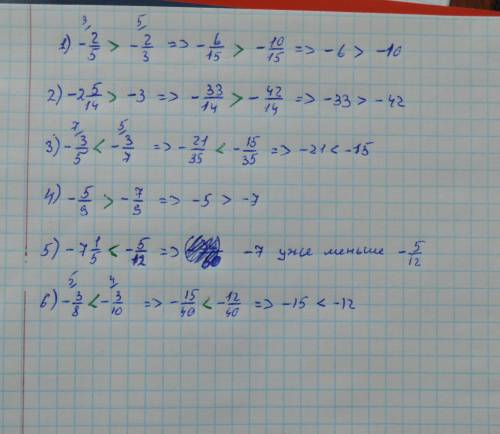 1) -2/5 (3/) > -2/3 (5/) => -6/15 > -10/15 => -6 > -10
2) -2 5/14 > -3 => -33/14 > -42/14 => -33 > -42
3) -3/5 (7/) < -3/7 (5/) => -21/35 < -15/35 => -21 < -15
4) -5/9 > -7/9 => -5 > -7
5) -7 1/5 < -5/12 => -7 уже меньше -5/12
6) -3/8 (5/) < -3/10 (4/) => -15/40 < -12/40 => -15 < -12